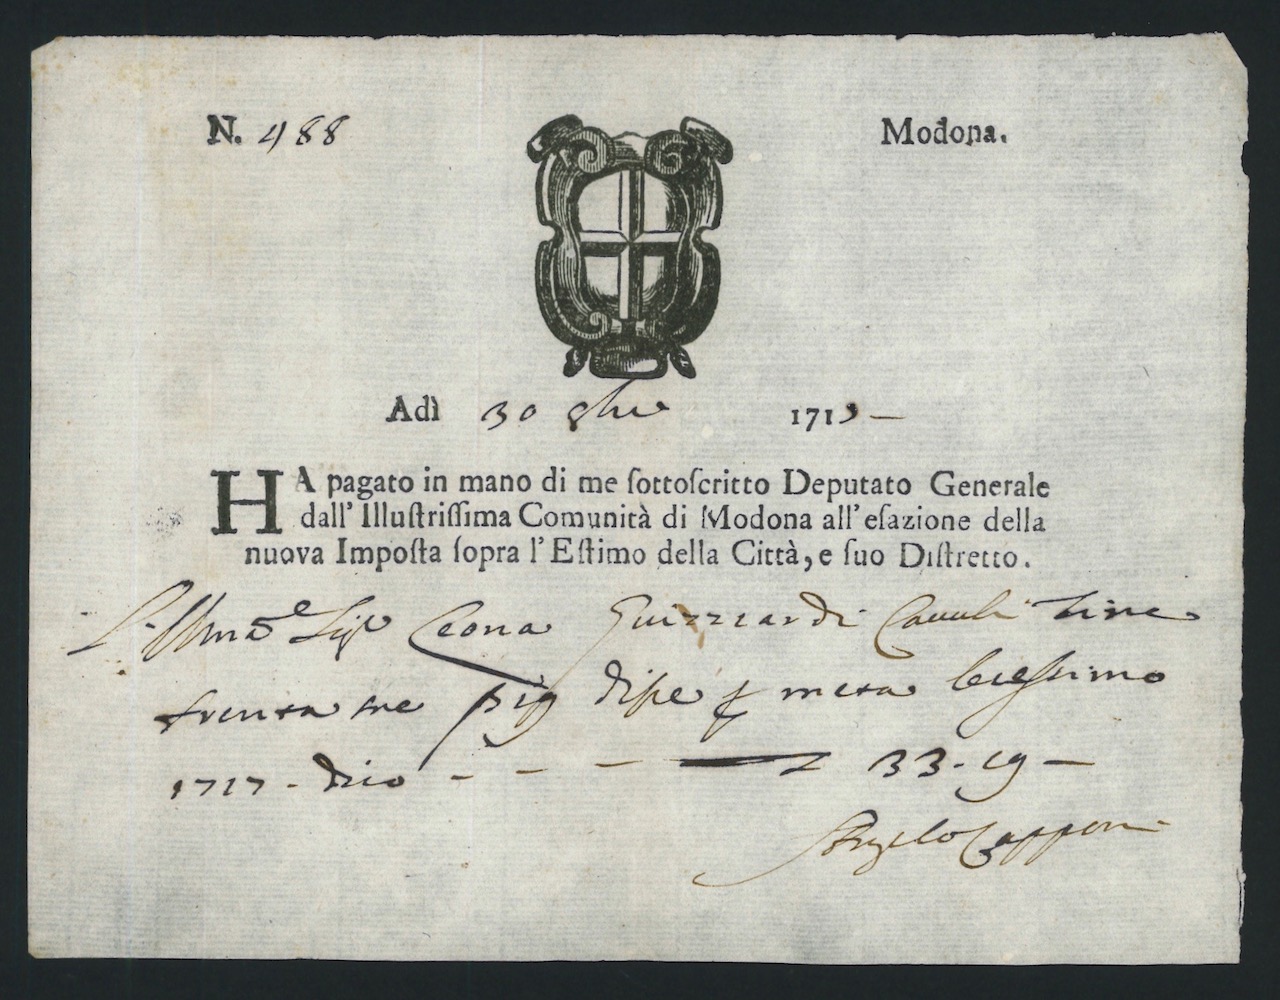 N. 488
Modona.
Adì 30 9bre 1719 –
HA pagato in mano di me ſottoſcritto Deputato Generale
dall' Illuſtriſſima Comunità di Modona all' eſazione della
nuova Impoſta ſopra l' Eſtimo della Città, e ſuo Diſtretto.
Leona Guizzardi Lire
trenta tre diſe meta
1717 - dico - - - 33 - 19 –
Angelo Capponi